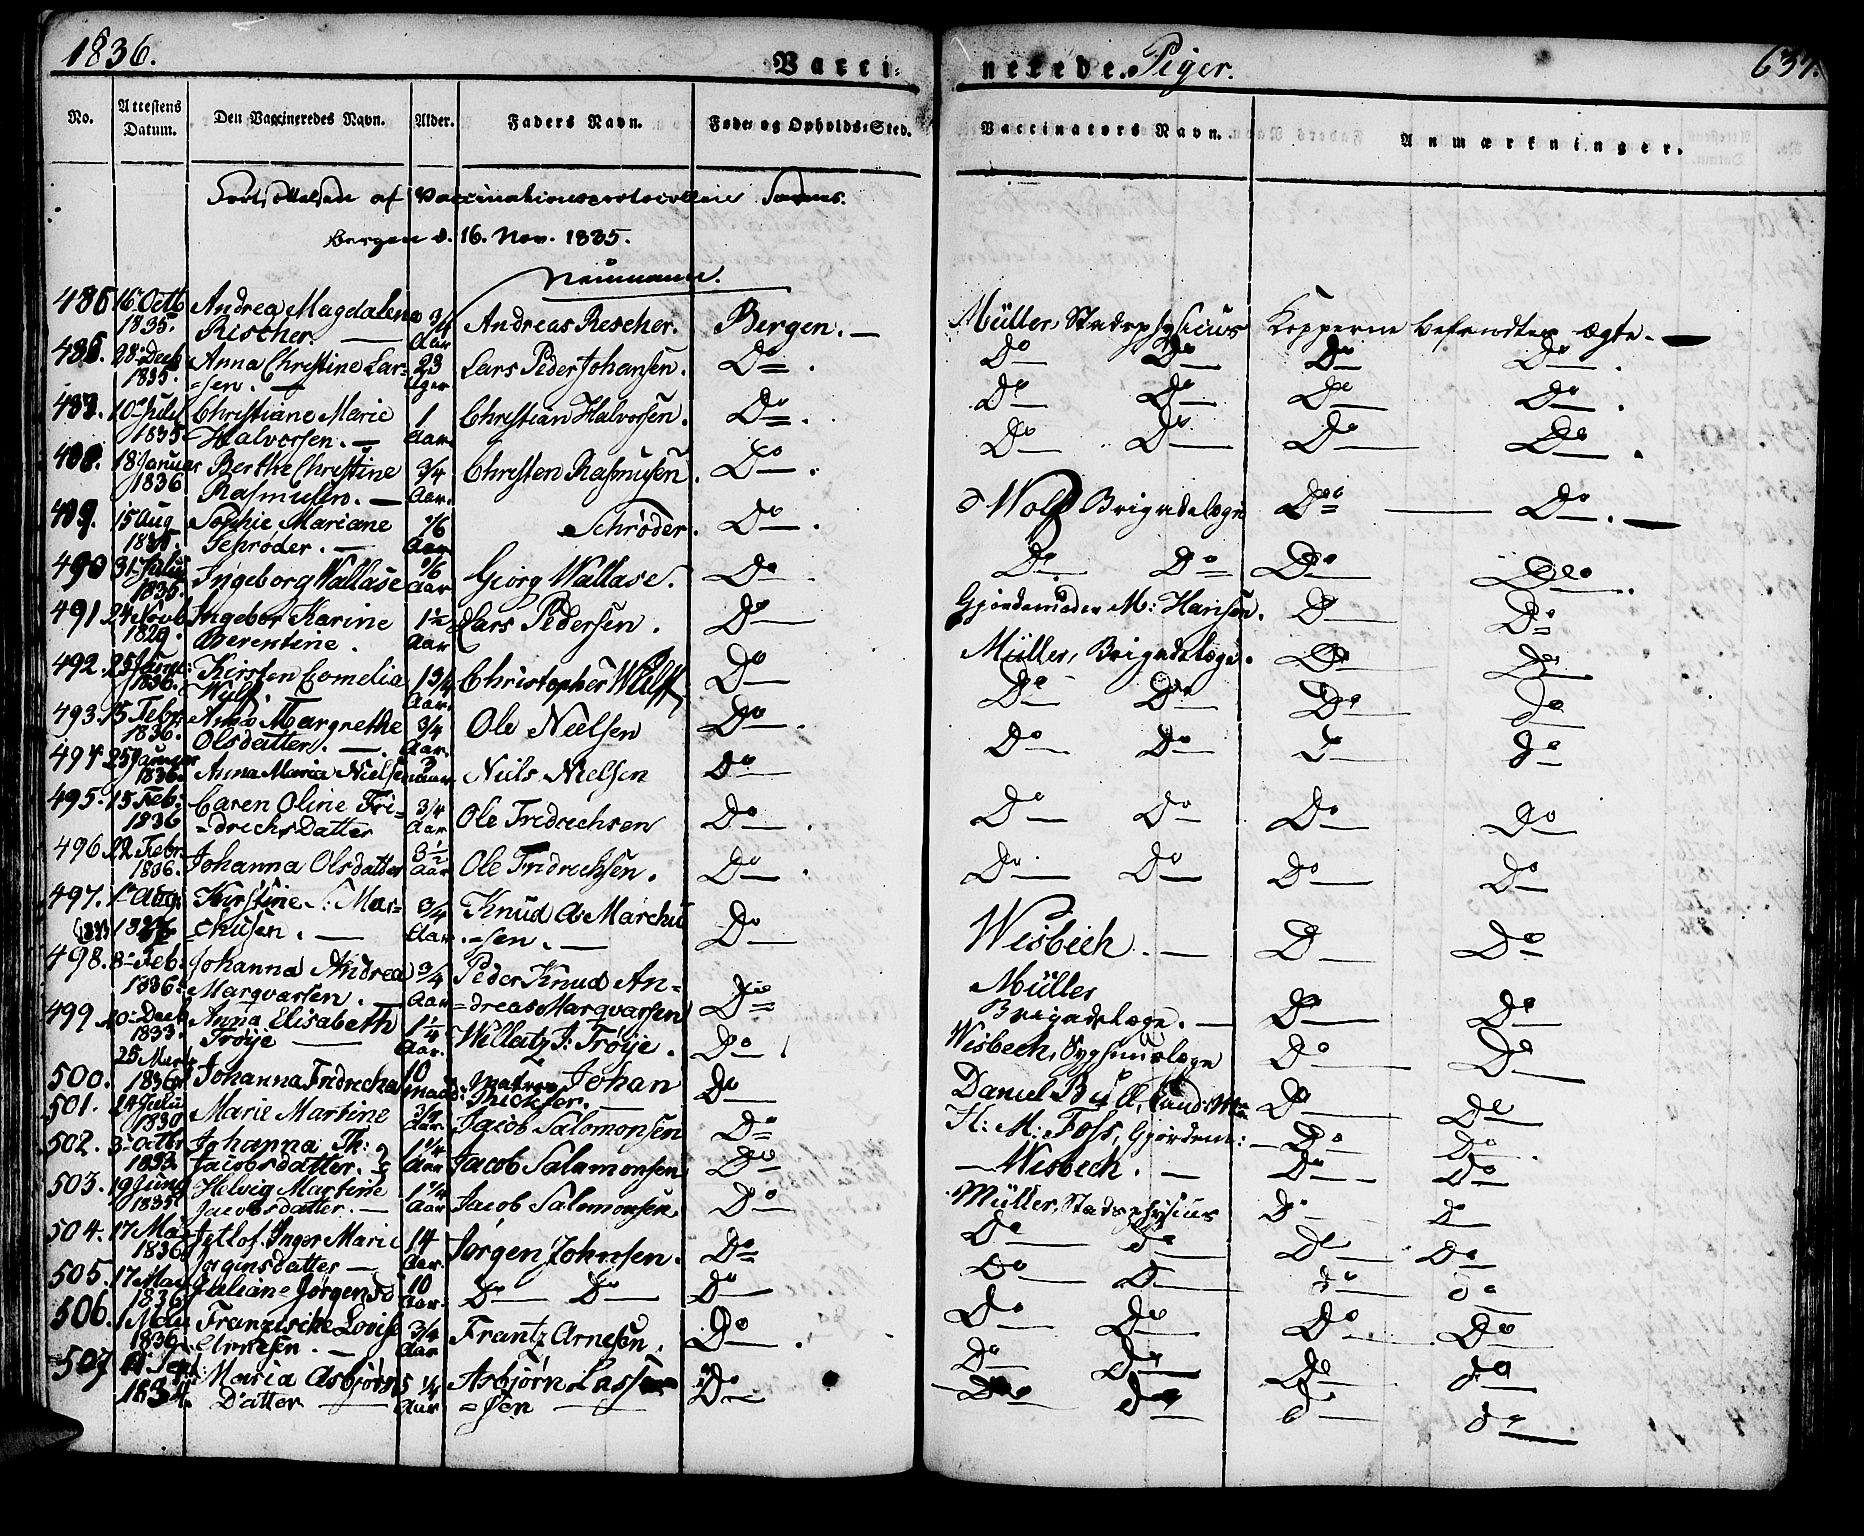 1836.
Vacci-
nerede Piger.
637.
No.
Attestens Datum.
Den Vaccineredes Navn.
Alder.
Faders Navn.
Føde- og Opholds-Sted.
Vaccinators Navn.
Anmærkninger.
Fortsættelse af Vaccinationsprotocollen
Bergen d. 16. Nov. 1835.
Neumann.
485 16 Octb Andrea Magdalena 3/4 Andreas Rescher. Bergen. — Müller, Stadsphysicus Kopperne befandtes ægte. —
1835. Rescher. — Aar
486. 28 Decb Anna Christine Lar- 23 Lars Peder Johansen. Do Do Do Do Do
1835. =sen. — Uger
487. 10 Juli Christiane Marie 1 Christian Halvorsen. Do Do Do Do Do
1835 Halvorsen. — Aar
488. 18 Januar Berthe Christine 3/4 Christen Rasmusen. Do Do Do Do Do
1836 Rasmusen. — Aar.
489. 15 Aug Sophie Mariane Schrøder. Do Wolf Brigadelæge Do — Do
1835. Schrøder. — Aar
490 31 Julii Ingeborg Wallase Georg Wallase. Do Do Do Do Do
1835. Aar
491 24 Novb Ingebor Karine 1½ Lars Pedersen. Do Gjordemoder M: Hansen. Do Do
1829. Berentine. Aar
492. 25 Januar Kirsten Cornelia 1 3/4 Christopher Wulff Do Müller, Brigadelæge. Do Do
1836. Wulf. Aar.
493. 15 Febr Anne Margrethe 3/4 Ole Nielsen Do Do Do Do Do
1836. Olsdatter. — Aar.
494 25 Januar Anna Maria Nielsen Niels Nielsen Do Do Do Do Do
1836.
495. 15 Feb: Caren Oline Fri- 3/4 Ole Fredrechsen Do Do Do Do Do
1836 =drechsDatter Aar
496. 22 Febr Johanna Olsdatter 3½ Ole Fridrechsen. Do Do Do Do Do
1836. Aar
497. 1 Aug: Kirstine S: Mar- 3/4 Knud A. Marchu Do Wisbech. — Do Do
=chusen. — Aar =sen. —
498. 8 Feb: Johanna Andrea 3/4 Peder Knud An- Do Müller Do Do
1836. Marqvarsen. — Aar =dreas Marqvarsen Brigadelæge. —
499 10 Decb Anna Elisabeth 1¼ Willatz J: Trøije. Do Wisbech, Do Do
1833. Trøije — Aar.
500. 25 Marts Johanna Fredrecha 10 Johan Do Daniel Do Do
1836 maan
501. 14 Julii Marie Martine 3/4 Jacob Salomonsen Do H: M: Foss, Gjordem: — Do Do
1830 Aar
502. 3 Octbr Johanna Th: 1¼ Jacob Salamonsen Do — Wisbech. — Do Do
1832 Jacobsdatter. Aar
503. 19 Juni Helvig Martine Jacob Salomonsen Do Müller, Stadsphysicus Do Do
1835. Jacobsdatter. — Aar
504. 17 Mai Inger Marie 14 Jørgen Johnsen. Do Do Do Do Do
1836 Jørgensdatter — Aar.
505. 17 Mai Juliane Jørgensd 10 Do Do Do Do Do Do Do
1836 Aar.
506. 1 Mai Franziscke Lovise 3/4 Frantz Arnesen. Do Do Do Do Do
1836. Arnesen. — Aar
507 Sept: Maria Asbjørns ¼ Asbjørn Do Do Do Do Do
1834. Datter — Aar =sen — Do Do Do Do